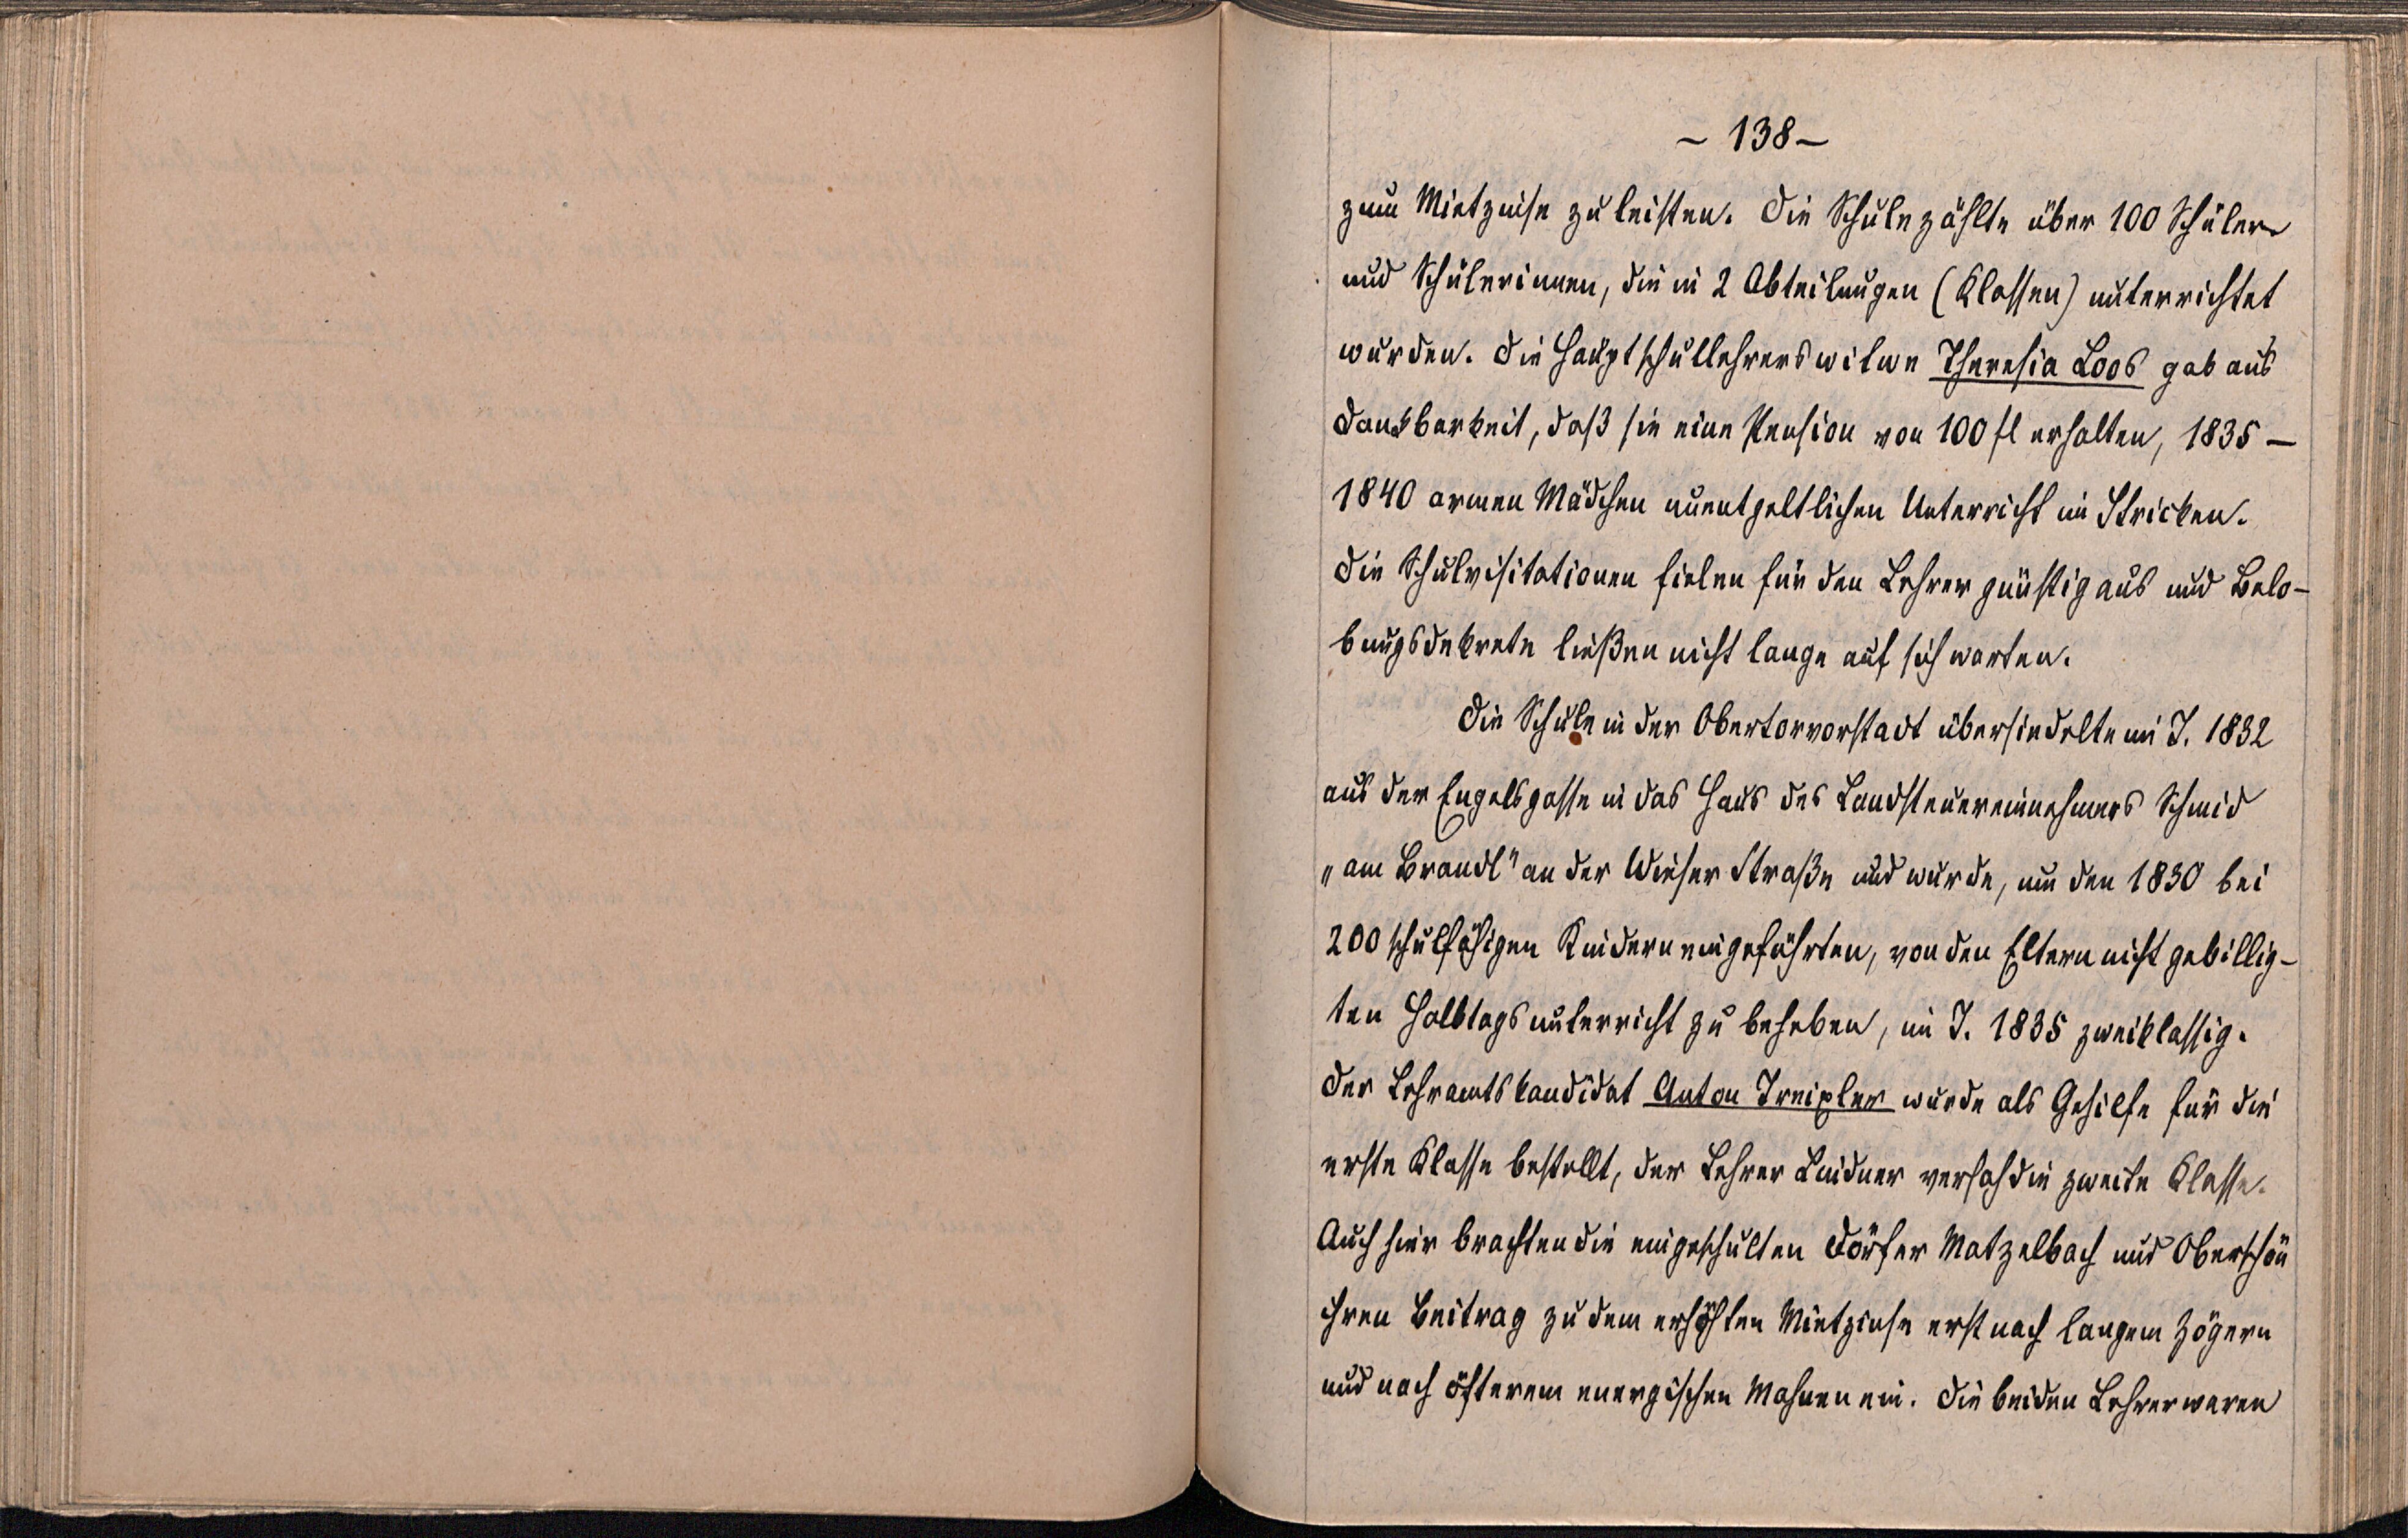 – 138 –
zum Mietzinse zu leisten. Die Schule zählte über 100 Schüler
und Schülerinnen, die in 2 Abteilungen (Klassen) unterrichtet
wurden. Die Hauptschullehrerswitwe Theresia Loos gab aus
Dankbarkeit, daß sie eine Pension von 100 fl erhalten, 1835 –
1840 armen Mädchen unentgeltlichen Unterricht im Stricken.
Die Schulvisitationen fielen für den Lehrer günstig aus und Belo-
bungsdekrete ließen nicht lange auf sich warten.
Die Schule in der Obertorvorstadt übersiedelte im J. 1832
aus der Engelsgasse in das Haus des Landsteuereinnehmers Schmid
„am Brandl" an der Wieser Straße und wurde, um den 1830 bei
200 schulfähigen Kindern eingeführten, von den Eltern nicht gebillig-
ten Halbtagsunterricht zu beheben, im J. 1835 zweiklassig.
Der Lehramtskandidat Anton Treixler wurde als Gehilfe für die
erste Klasse bestellt, der Lehrer Lindner versah die zweite Klasse.
Auch hier brachten die eingeschulten Dörfer Matzelbach und Oberschön
ihren Beitrag zu dem erhöhten Mietzinse erst nach langem Zögern
und nach öfterem energischen Mahnen ein. Die beiden Lehrer waren